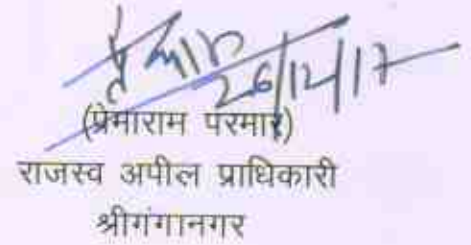 26/12/17
(प्रेमाराम परमार)
राजस्व अपील प्राधिकारी
श्रीगंगानगर